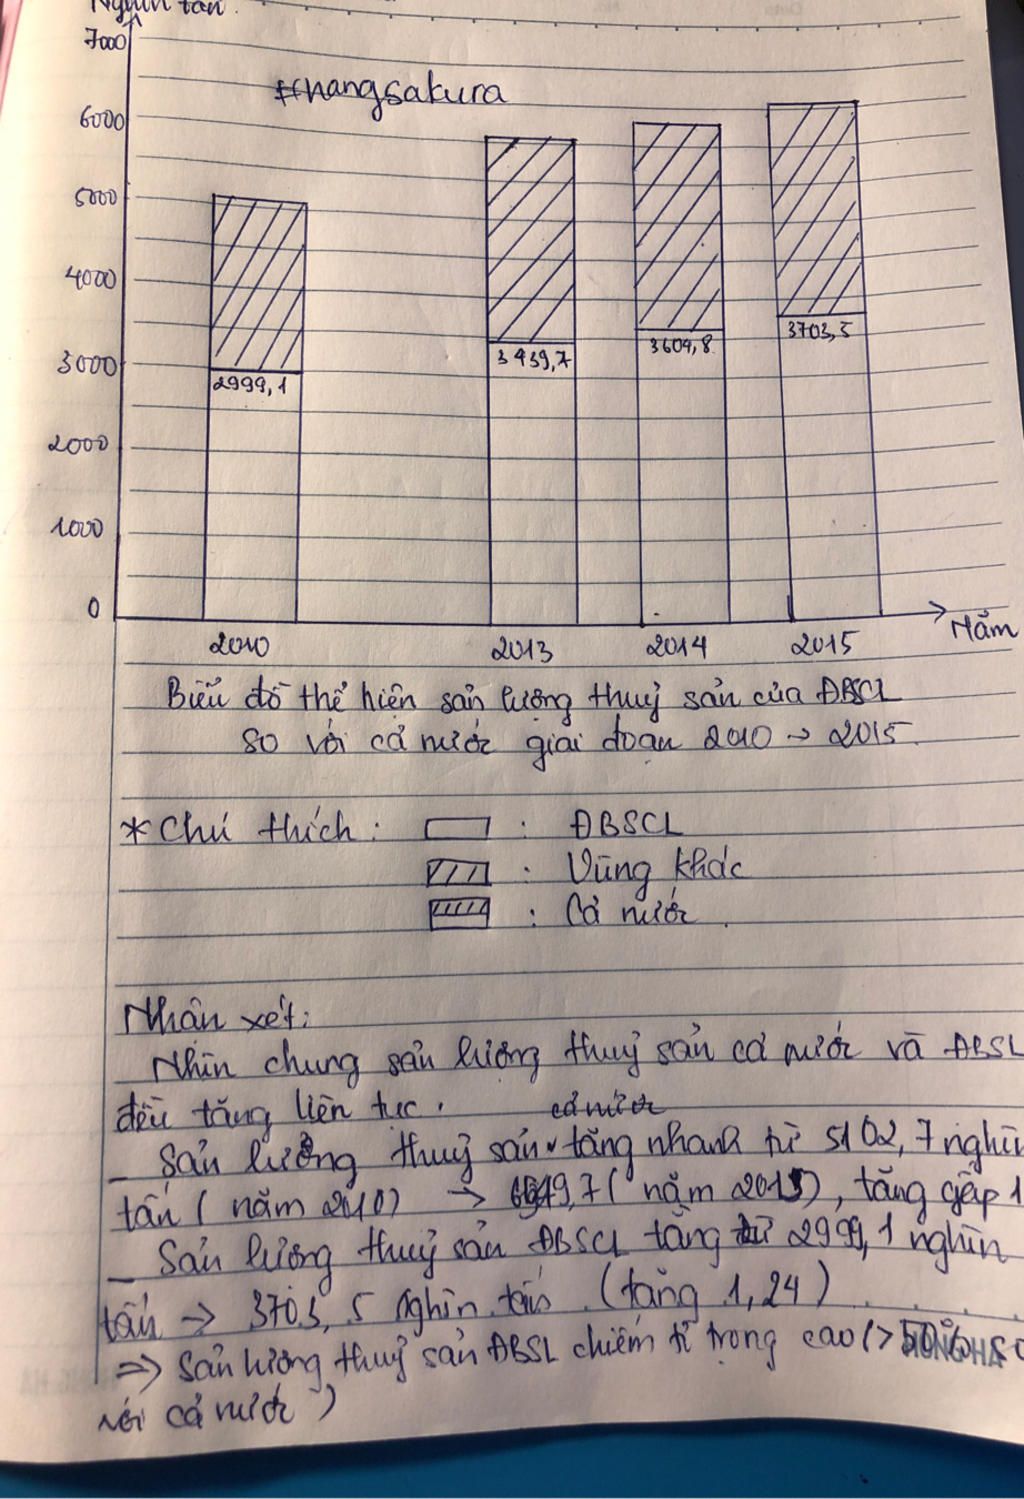 Nghìn tấn
7000
#hangsakura
6000
5000
4000
3000
2999,1
3439,7
3609,8
3703,5
2000
1000
0
2010 2013 2014 2015 Năm
Biểu đồ thể hiện sản lượng thuỷ sản của ĐBSCL
so với cả nước giai đoạn 2010 → 2015
*Chú thích: : ĐBSCL
: Vùng khác
: Cả nước
Nhận xét:
Nhìn chung sản lượng thuỷ sản cả nước và ĐBSL
đều tăng liên tục.
cả nước
_ Sản lượng thuỷ sản tăng nhanh từ 5102,7 nghìn
tấn (năm 2010) → (năm 2015), tăng gấp 1
_ Sản lượng thuỷ sản ĐBSCL tăng từ 2999,1 nghìn
tấn → 3703,5 nghìn tấn (tăng 1,24)
=> Sản lượng thuỷ sản ĐBSL chiếm tỉ trọng cao (> 50% so
với cả nước)